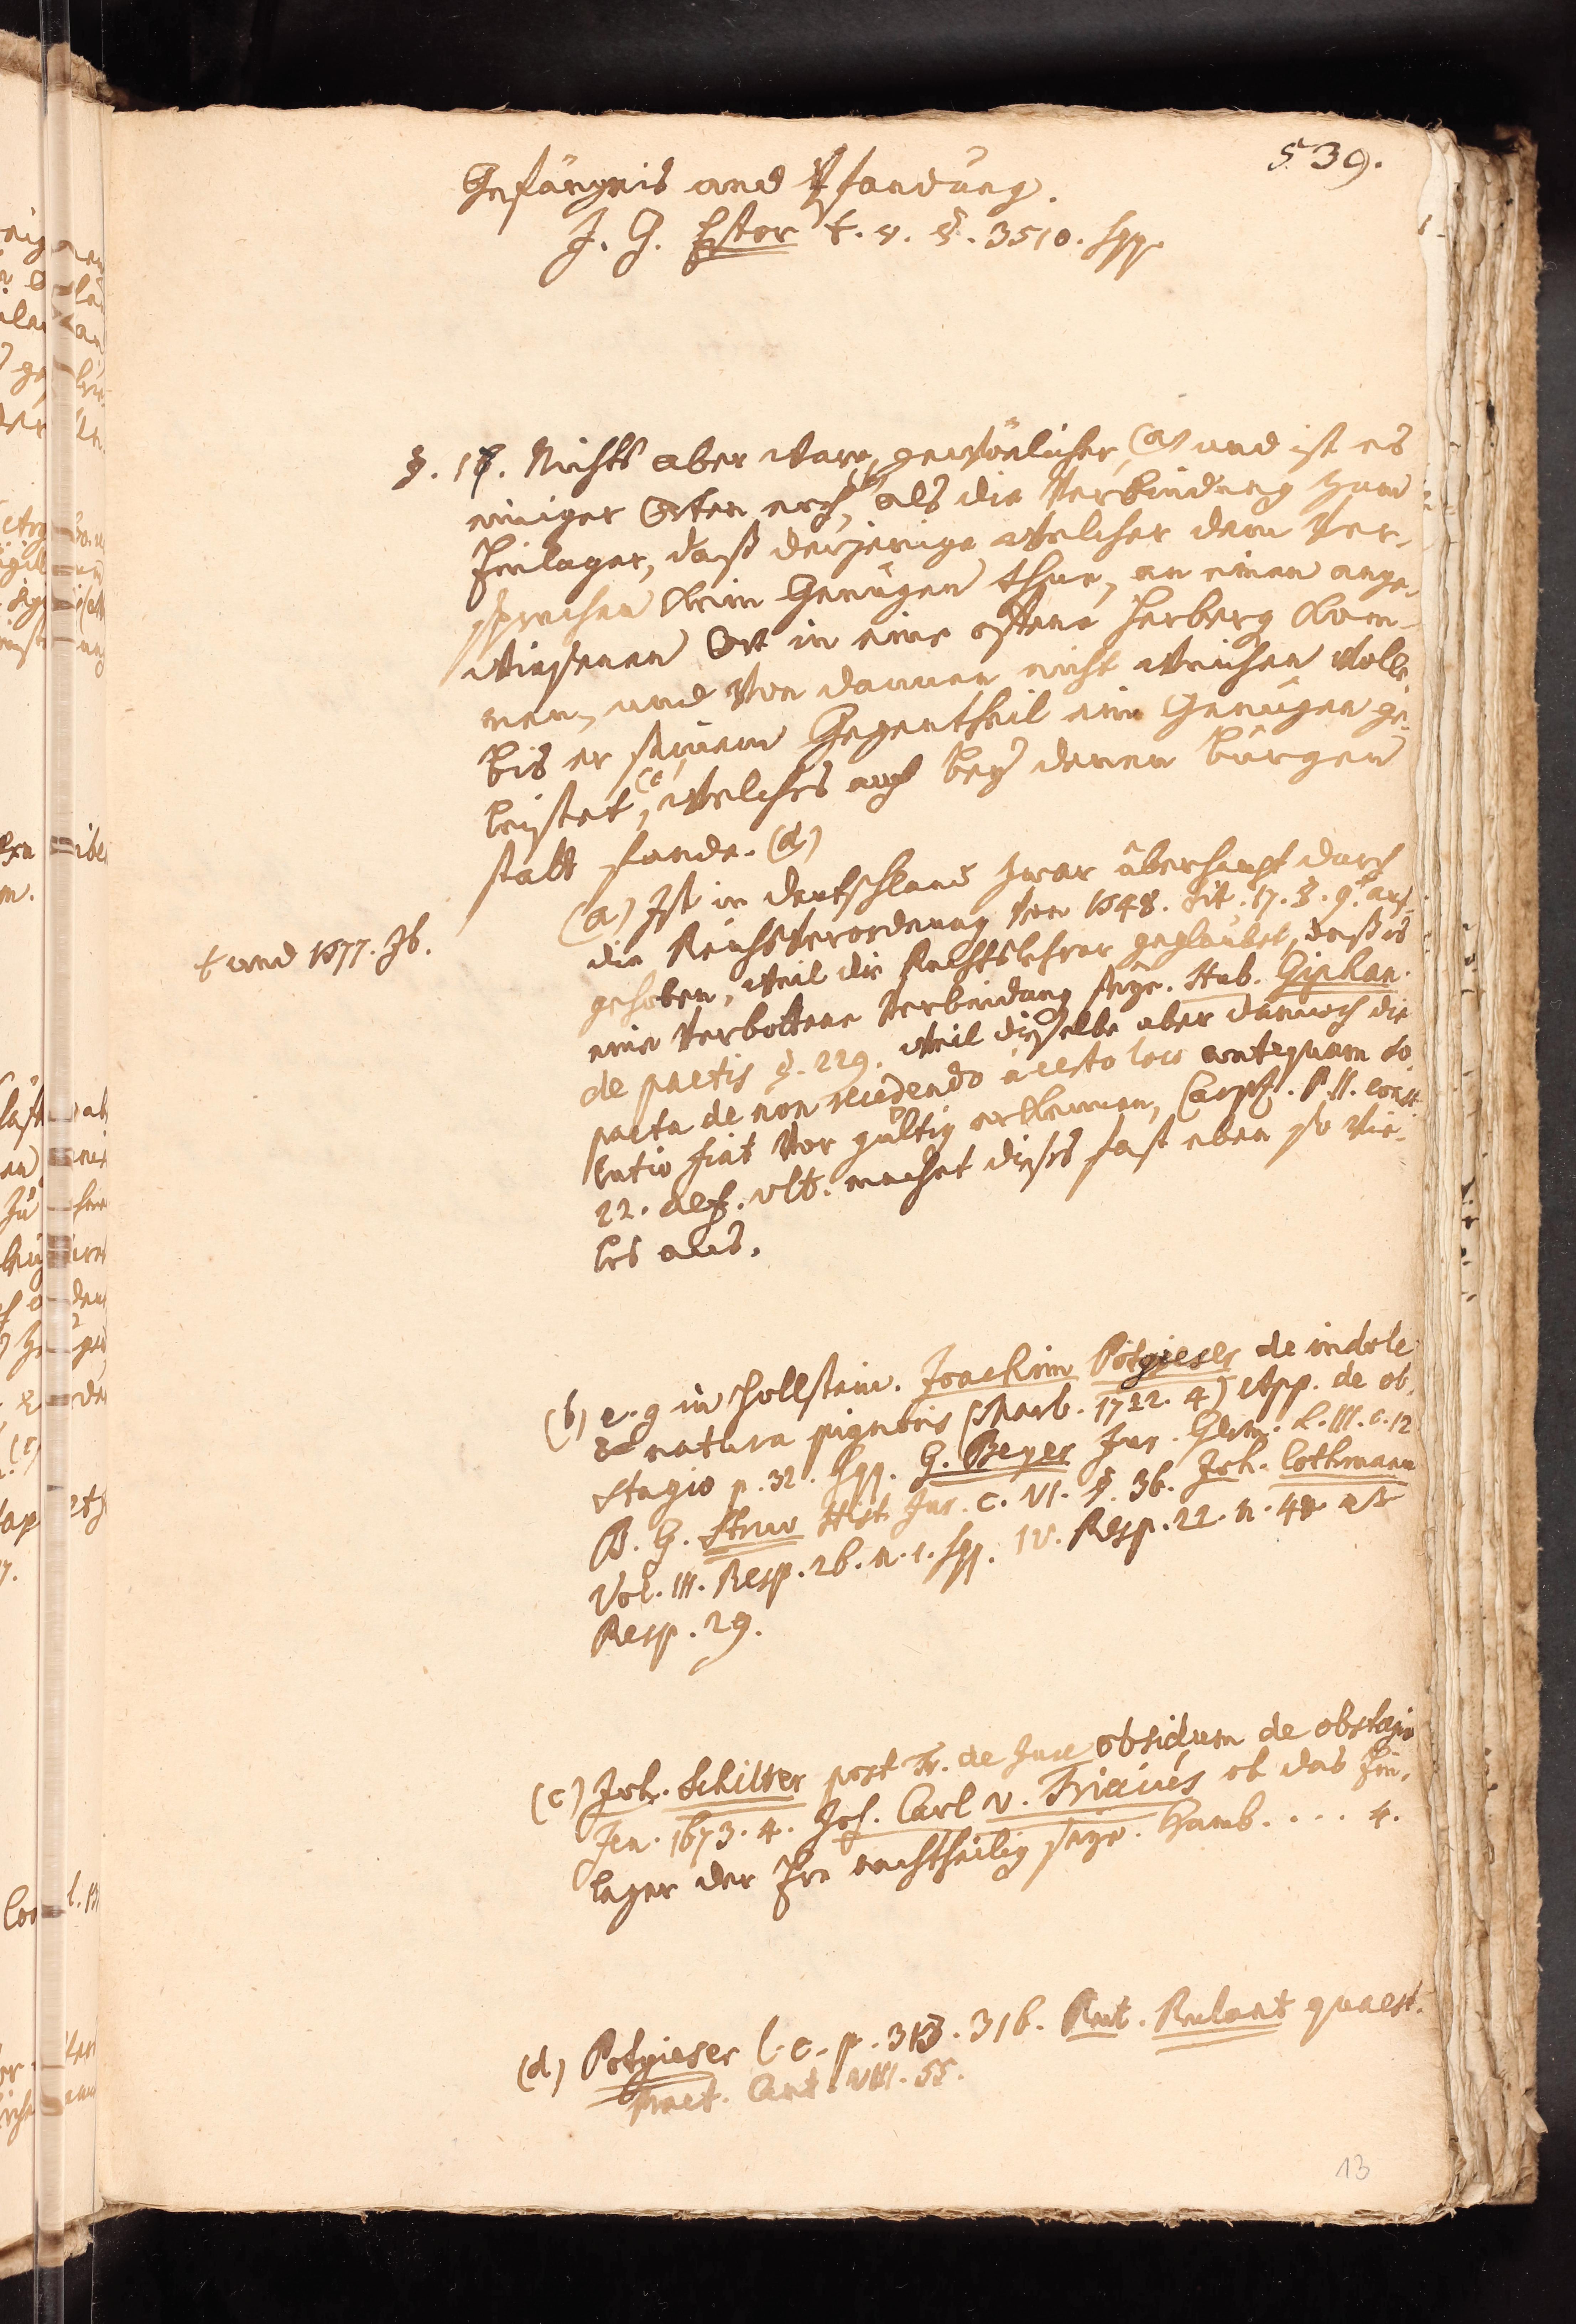 539.
Gefängnis und Pfandung.
J. G. Estor t. v. §. 3510. sqq.
§. 18. Nichts aber ware gewöhnlicher, (a) und ist es
einiger Orten noch, (b) als die Verbindung zum
Einlager, daß derjenige welcher dem Ver-
sprechen kein Genügen thue, an einen ange-
wiesenen Ort in eine offene Herberg kom-
men, und von dannen nicht weichen wolle,
bis er seinem Gegentheil ein Genügen ge-
leistet, (c) welches auch bey denen Bürgen
statt fande. (d)
(a) Ist in Deutschland zwar überhaupt durch
die Reichsverordnung von 1548. tit. 17. §. 9. t auf-
t und 1577. Jb.
gehoben, weil die Rechtslehrer geglaubet, daß es
eine verbottene Verbindung seye. Hub. Giphan.
de pactis §. 229. weil dieselbe aber dannoch die
pacta de non recedendo a certo loco antequam so
lutio fiat vor gültig erkennen, Carpz. P. II. const.
22. def. ult. machet dieses fast eben so vie-
les aus.
(b) e. g in Hollstein. Joachim Potgieser de indole
& natura pignoris (Marb. 1722. 4) App. de ob-
stagio p. 32. sqq. G. Beyer Jur. Germ. L. III. c. 12
B. G. Struv Hist. Jur. c. VI. §. 36. Joh. Cothmann
Vol. III. Resp. 26. n. 1. sqq. IV. Resp. 22. n. 48 et
Resp. 29.
(c) Joh. Schilter post Tr. de Jure obsidum de obstagio
Jen. 1673. 4. Joh. Carl v. Friccius ob das Ein-
lager der Ehre nachtheilig seye. Hamb. . . . 4.
(d) Potgieser l. c. p. 313. 316. Rut. Rulant quaest.
pract. Cent. VIII. 55.
13